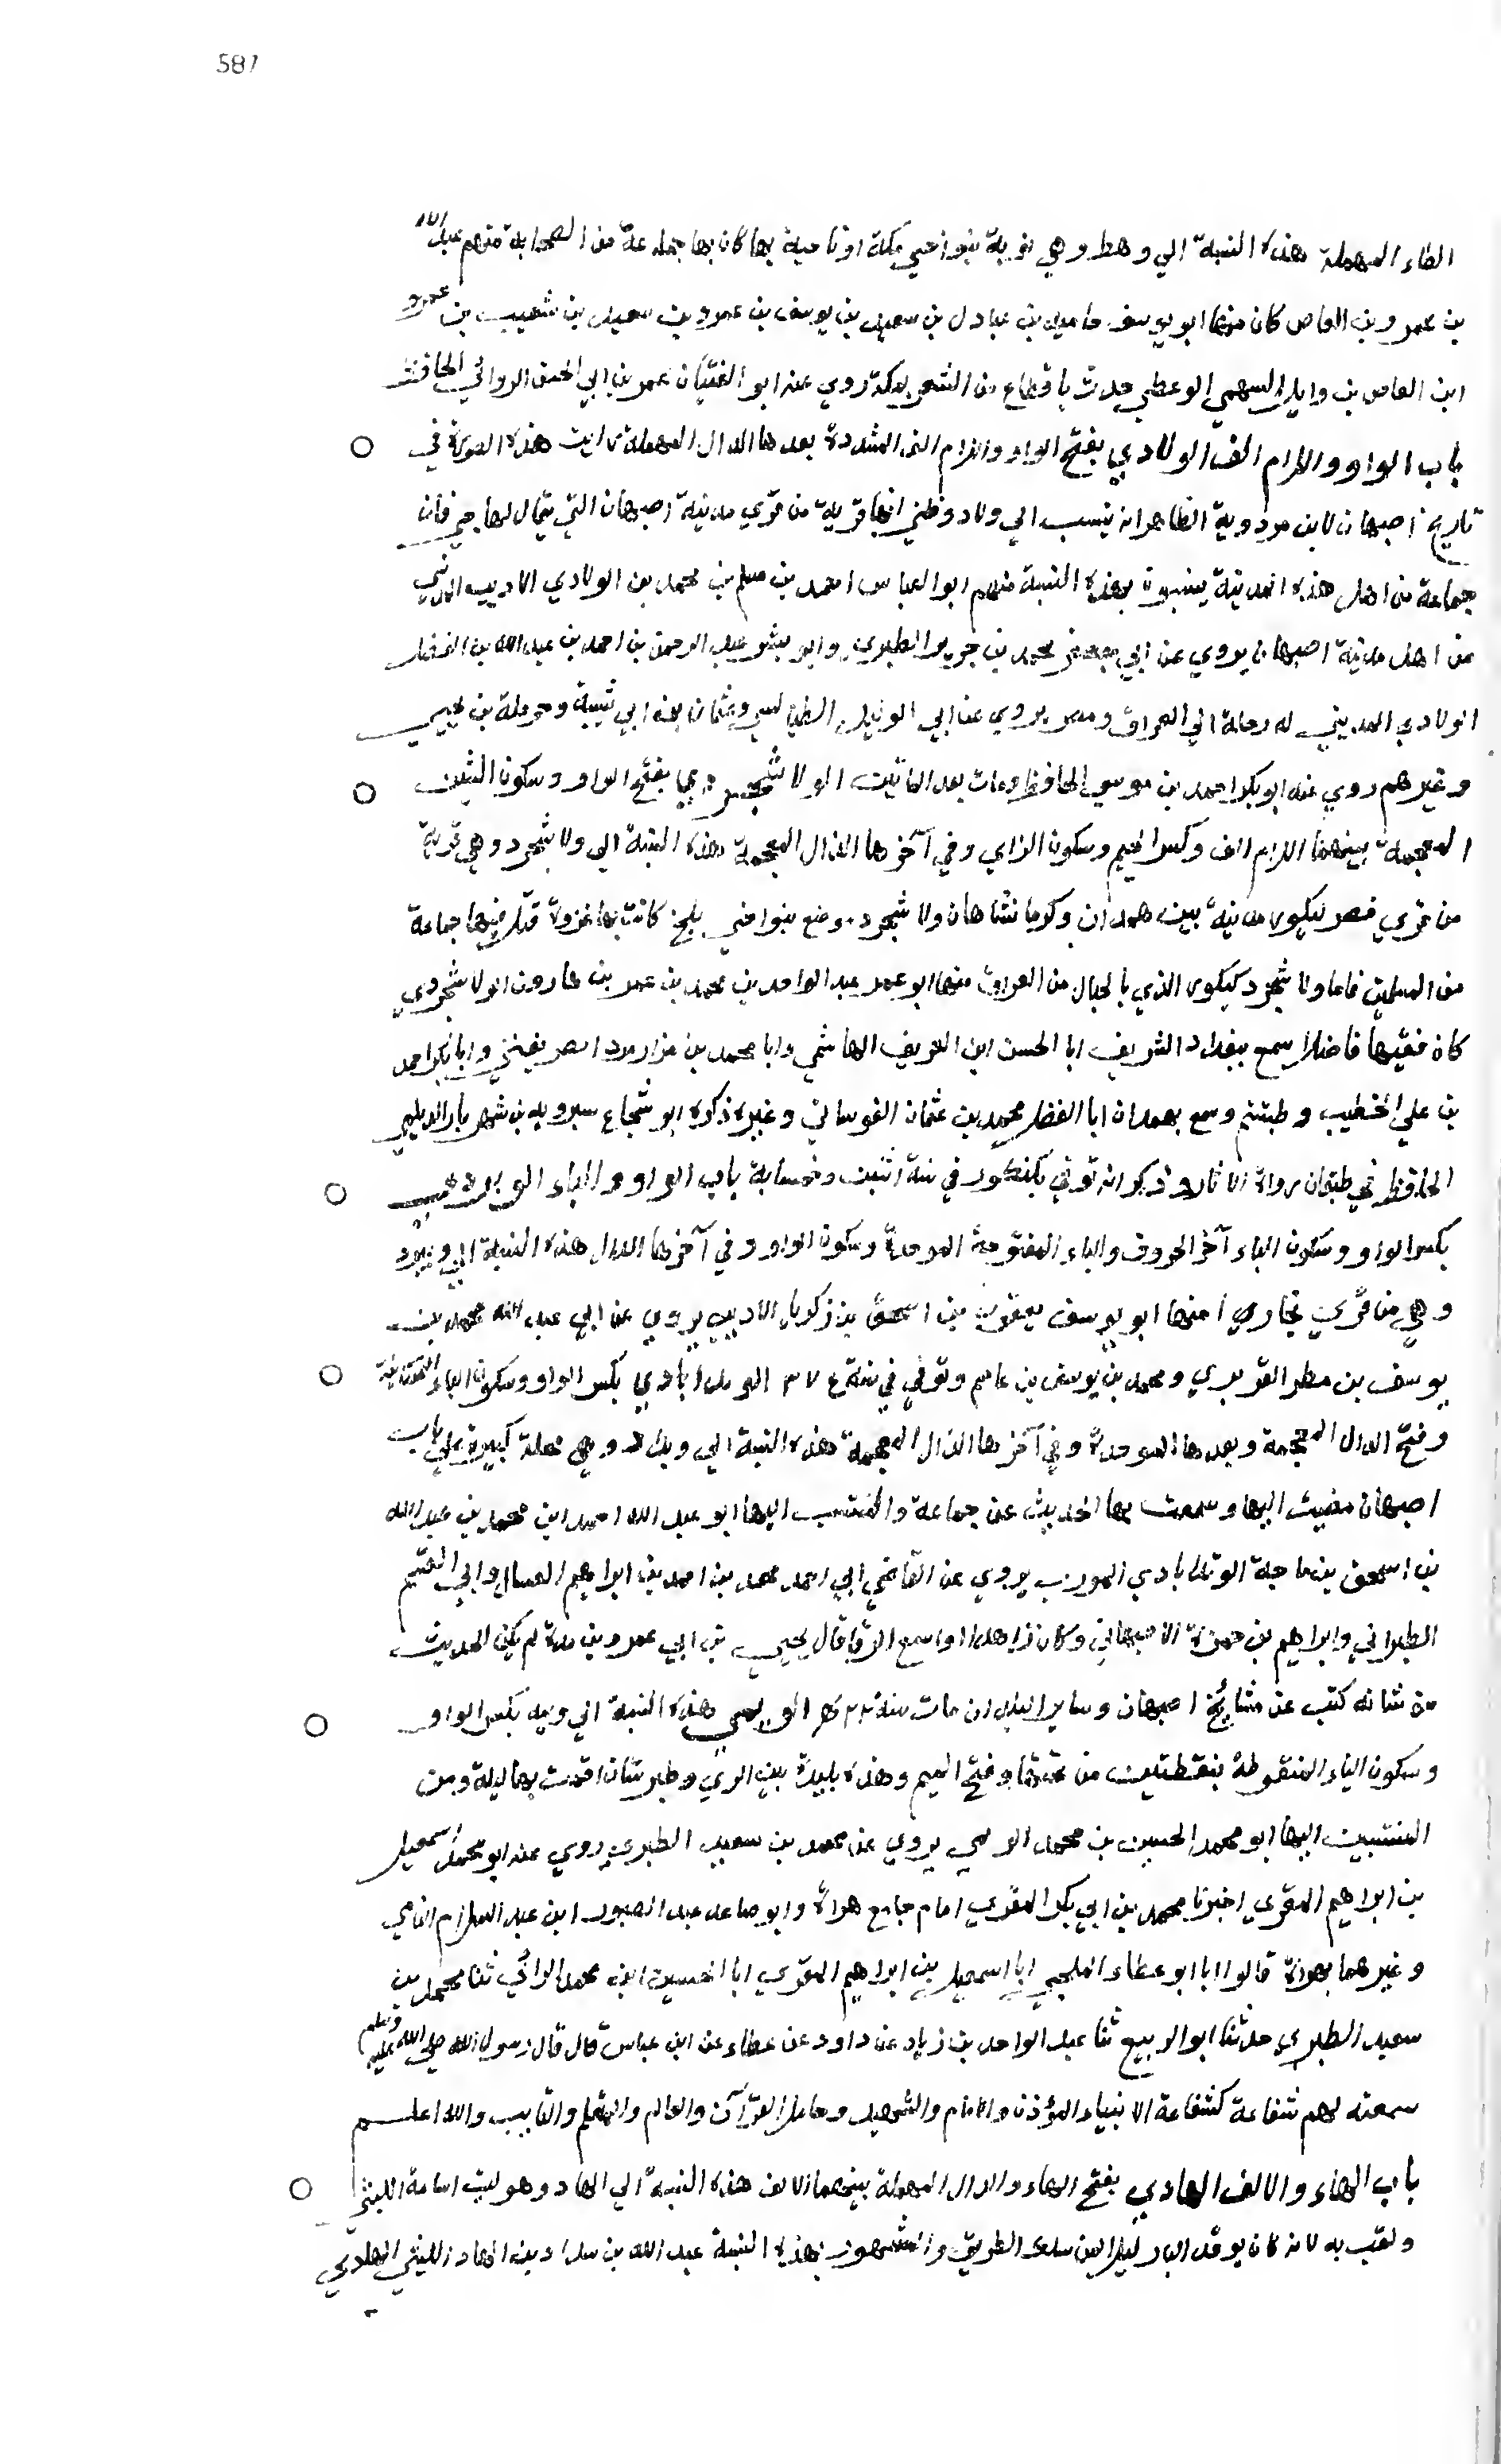 587
الطاء المهملة هذه النسبة الي وهط وهي قرية بنواحي مكة او ناحية بها كان بها جماعة من الصحابة منهم عبد الله
بن عمرو بن العاص كان منها ابو يوسف حامد بن عبادل بن سعيد بن يوسف بن عمرو بن سعيد بن شعيب بن عمرو
ابن العاص بن وايل السهمي الوهطي حدث باقطاع من الشعر بمكة روي عنه ابو الفتيان عمر بن ابي الحسن الرواسي الحافظ
باب الواو واللام الف الولادي بفتح الواو واللام الف المشددة بعدها الدال المهملة رايت هذه الصورة في
تاريخ اصبهان لابن مردوية الظاهر انه ينسب الي ولاد وظني انها قرية من قري مدينة اصبهان التي يقال لها جي فان
جماعة من اهل هذه المدينة ينسبون بهذه النسبة منهم ابو العباس احمد بن مسلم بن محمد بن الولادي الاديب المديني
من اهل مدينة اصبهان يروي عن ابي جعفر محمد بن جرير الطبري وابو بشر عبد الرحمن بن احمد بن عبد الله بن الفضل
الولادي المديني له رحلة الي العراق ومصر يروي عن ابي الوليد الطيالسي وعثمان بن ابي شيبة وحرملة بن يحيي
وغيرهم روي عنه ابو بكر احمد بن موسي الحافظ ومات بعد المائتين الولاشجردي بفتح الواو وسكون الشين
المعجمة بينهما اللام الف وكسر الجيم وسكون الزاي وفي آخرها الذال المعجمة هذه النسبة الي ولاشجرد وهي قرية
من قري قصر كنكور مدينة بين همدان وكرمانشاهان ولاشجرد موضع بنواحي بلخ كانت بها غزوة قتل فيها جماعة
من المسلمين فاما ولاشجرد كنكور الذي بالجبال من العراق منها ابو عمر عبد الواحد بن محمد بن عمر بن هارون الولاشجردي
كان فقيها فاضلا سمع ببغداد الشريف ابا الحسن ابن الغريف الهاشمي وابا محمد بن هزارمرد الصريفيني وابا بكر احمد
بن علي الخطيب وطبقتهم وسمع بهمدان ابا الفضل محمد بن عثمان القومساني وغيره ذكره ابو شجاع شيرويه بن شهريار الديلمي
الحافظ في طبقات رواة الاثار وذكر انه توفي بكنكور في سنة اثنين وخمسماية باب الواو والياء الويبودي
بكسر الواو وسكون الياء آخر الحروف والباء المفتوحة الموحدة وسكون الواو وفي آخرها الدال هذه النسبة الي ويبود
وهي من قري بخاري منها ابو يوسف يعقوب بن اسحق بن زكريا الاديب يروي عن ابي عبد الله محمد بن
يوسف بن مطر الفربري ومحمد بن يوسف بن عاصم وتوفي في سنة الويذاباذي بكسر الواو وسكون الياء التحتانية
وفتح الدال المعجمة وبعدها الموحدة وفي آخرها الذال المعجمة هذه النسبة الي ويذاباذ وهي محلة كبيرة علي باب
اصبهان مضيت اليها وسمعت بها الحديث عن جماعة والمنتسب اليها ابو عبد الله احمد ابن محمد بن عبد الله
بن اسحق بن ماجة الويذاباذي المودب يروي عن القاضي ابي احمد محمد بن احمد بن ابراهيم العسال وابي القسم
الطبراني وابراهيم بن حمزة الاصبهاني وكان زاهدا واسمع الرقا قال يحيي بن ابي عمرو بن مندة لم يكن الحديث
من شانه كتب عن مشايخ اصبهان وساير البلدان مات سنة الويمي هذه النسبة الي ويمه بكسر الواو
وسكون الياء المنقوطة بنقطتين من تحتها وفتح الميم وهذه بليدة بين الري وطبرستان اقمت بها ليلة ومن
المنتسبين اليها ابو محمد الحسين بن محمد الويمي يروي عن محمد بن سعيد الطبري روي عنه ابو محمد اسمعيل
بن ابراهيم المقري اخبرنا محمد بن ابي بكر المقري امام جامع هراة وابو صاعد عبد الصبور ابن عبد السلام الفامي
وغيرهما بهراة قالوا ابا ابو عطاء المليحي ابا اسمعيل بن ابراهيم المقري ابا الحسين ابن محمد الرائي ثنا محمد بن
سعيد الطبري حدثنا ابو الربيع ثنا عبد الواحد بن زياد عن داود عن عطاء عن ابن عباس قال قال رسول الله صلي الله عليه وسلم
سمعته لهم شفاعة كشفاعة الانبياء المؤذن والامام والشهيد وحامل القرآن والعالم والمتعلم والتايب والله اعلم
باب الهاء والالف الهادي بفتح الهاء والدال المهملة بينهما الالف هذه النسبة الي الهاد وهو ليث اسامة الليثي
ولقب به لانه كان يوقد النار ليلا لمن سلك الطريق والمشهور بهذه النسبة عبد الله بن شداد بن الهاد الليثي الهادي